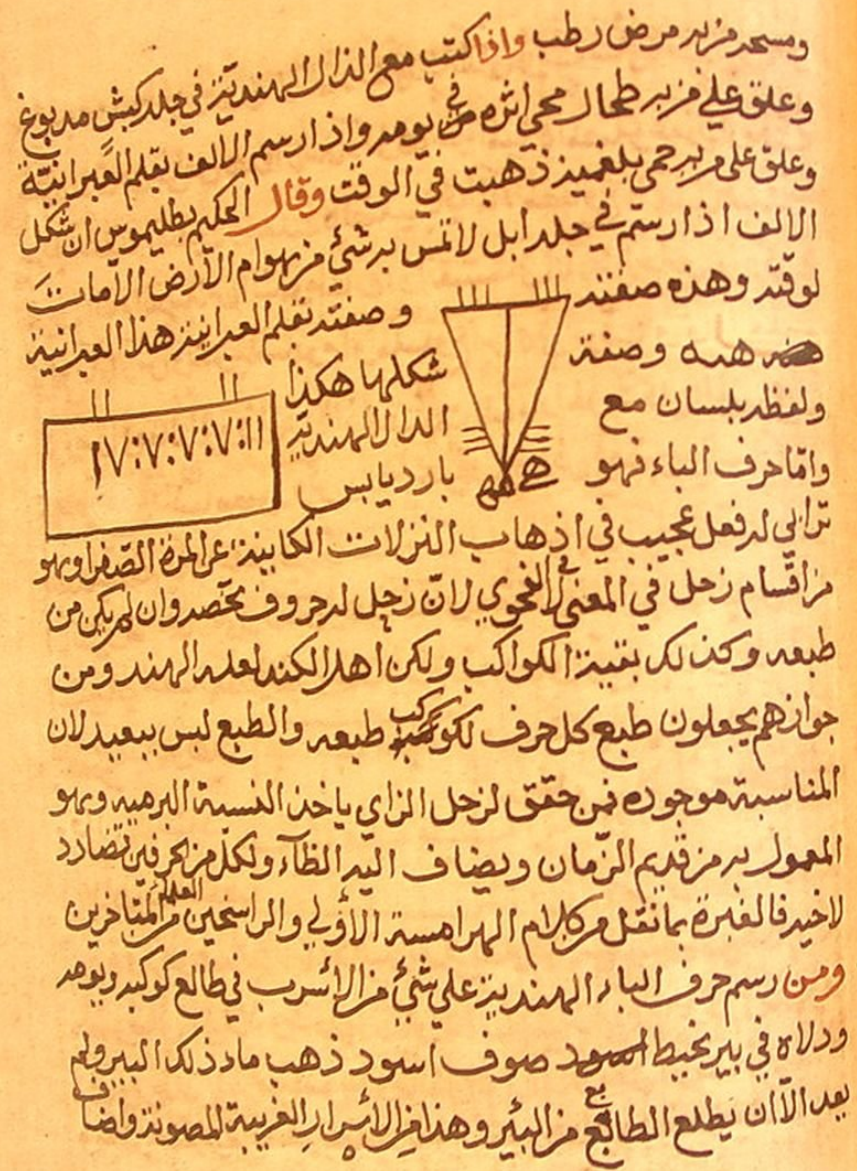 ومسحه من به مرض رطب واذا كتب مع الذال الهندية في جلد كبش مدبوغ
وعلق علي من به طحال محي اثره من يومه واذا رسم الالف بقلم العبرانية
وعلق على من به حمى بلغمية ذهبت في الوقت وقال الحكيم بطليموس ان شكل
الالف اذا رسم في جلد ابل لا تمس به شئ من هوام الارض الا مات
لوقته وهذه صفته وصفته بقلم العبرانية هذا العبرانية
هده وصفة شكلها هكذا
ولفظه بلسان مع الدال الهندية
واما حرف الباء فهو باردیابس
١٧:٧:٧:٧:١١
ترابي له فعل عجيب في اذهاب النزلات الكاينة عن المرة الصفرا وهو
من اقسام زحل في المعنى الفحوي لان زحل له حروف تخصه وان لم يكن من
طبعه وكذلك بقية الكواكب ولكن اهل الكند لعله الهند ومن
جوازهم يجعلون طبع كل حرف لكوكب طبعه والطبع ليس ببعيد لان
المناسبة موجوده فمن حقق لزحل الزاي ياخذ النسبة وهو
المعمول به من قديم الزمان ويضاف اليه الظآء ولكل من الحرفين تضادد
لاخيه فالعبرة بما نقل من كلام الهرامسة الاولي والراسخين العلم من المتاخرين
ومن رسم حرف الباء الهندية علي شئ من الاسرب في طالع كوكبه ويومه
ودلاه في بير بخيط صوف اسود ذهب ماء ذلك البير ولم
يعد الا ان يطلع الطابع من البئير وهذا من الاسرار الغريبة المصونة واضاف